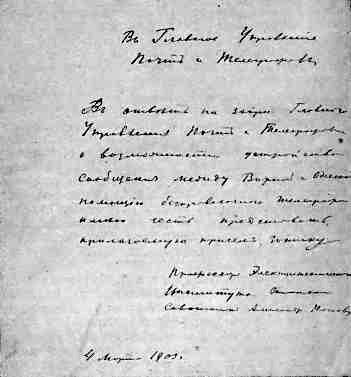 Въ Главное Управленіе
Почтъ и Телеграфовъ
Въ отвѣтъ на запросъ Главнаго
Управленія Почтъ и Телеграфовъ
о возможности устройства
сообщенія между Варной и Одессой
помощію безпроволочнаго телеграфа
имѣю честь представить
прилагаемую при семъ записку
Профессоръ Электротехническаго
Института
Александръ Поповъ
4 Марта 1903.